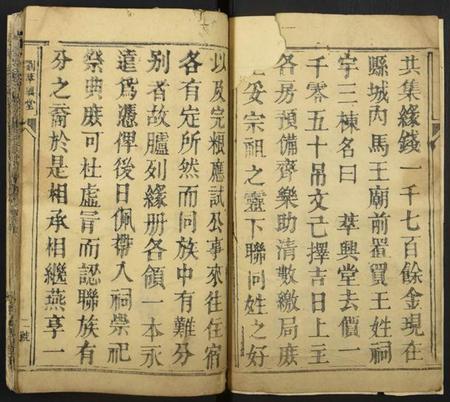 共集緣錢一千七百餘金現在
縣城內馬王廟前置買王姓祠
宇三棟名曰萃興堂去價一
千零五十吊文已擇吉日上主
各房預備齊樂助清數繳局庶
妥宗祖之靈下聯同姓之好
以及完糧應試公事來往住宿
各有定所然而同族中有難分
別者故臚列緣册各領一本永
遠爲憑俾後日佩帶入祠崇祀
祭典庶可杜虛冐而認聯族有
分之裔於是相承相繼燕享一